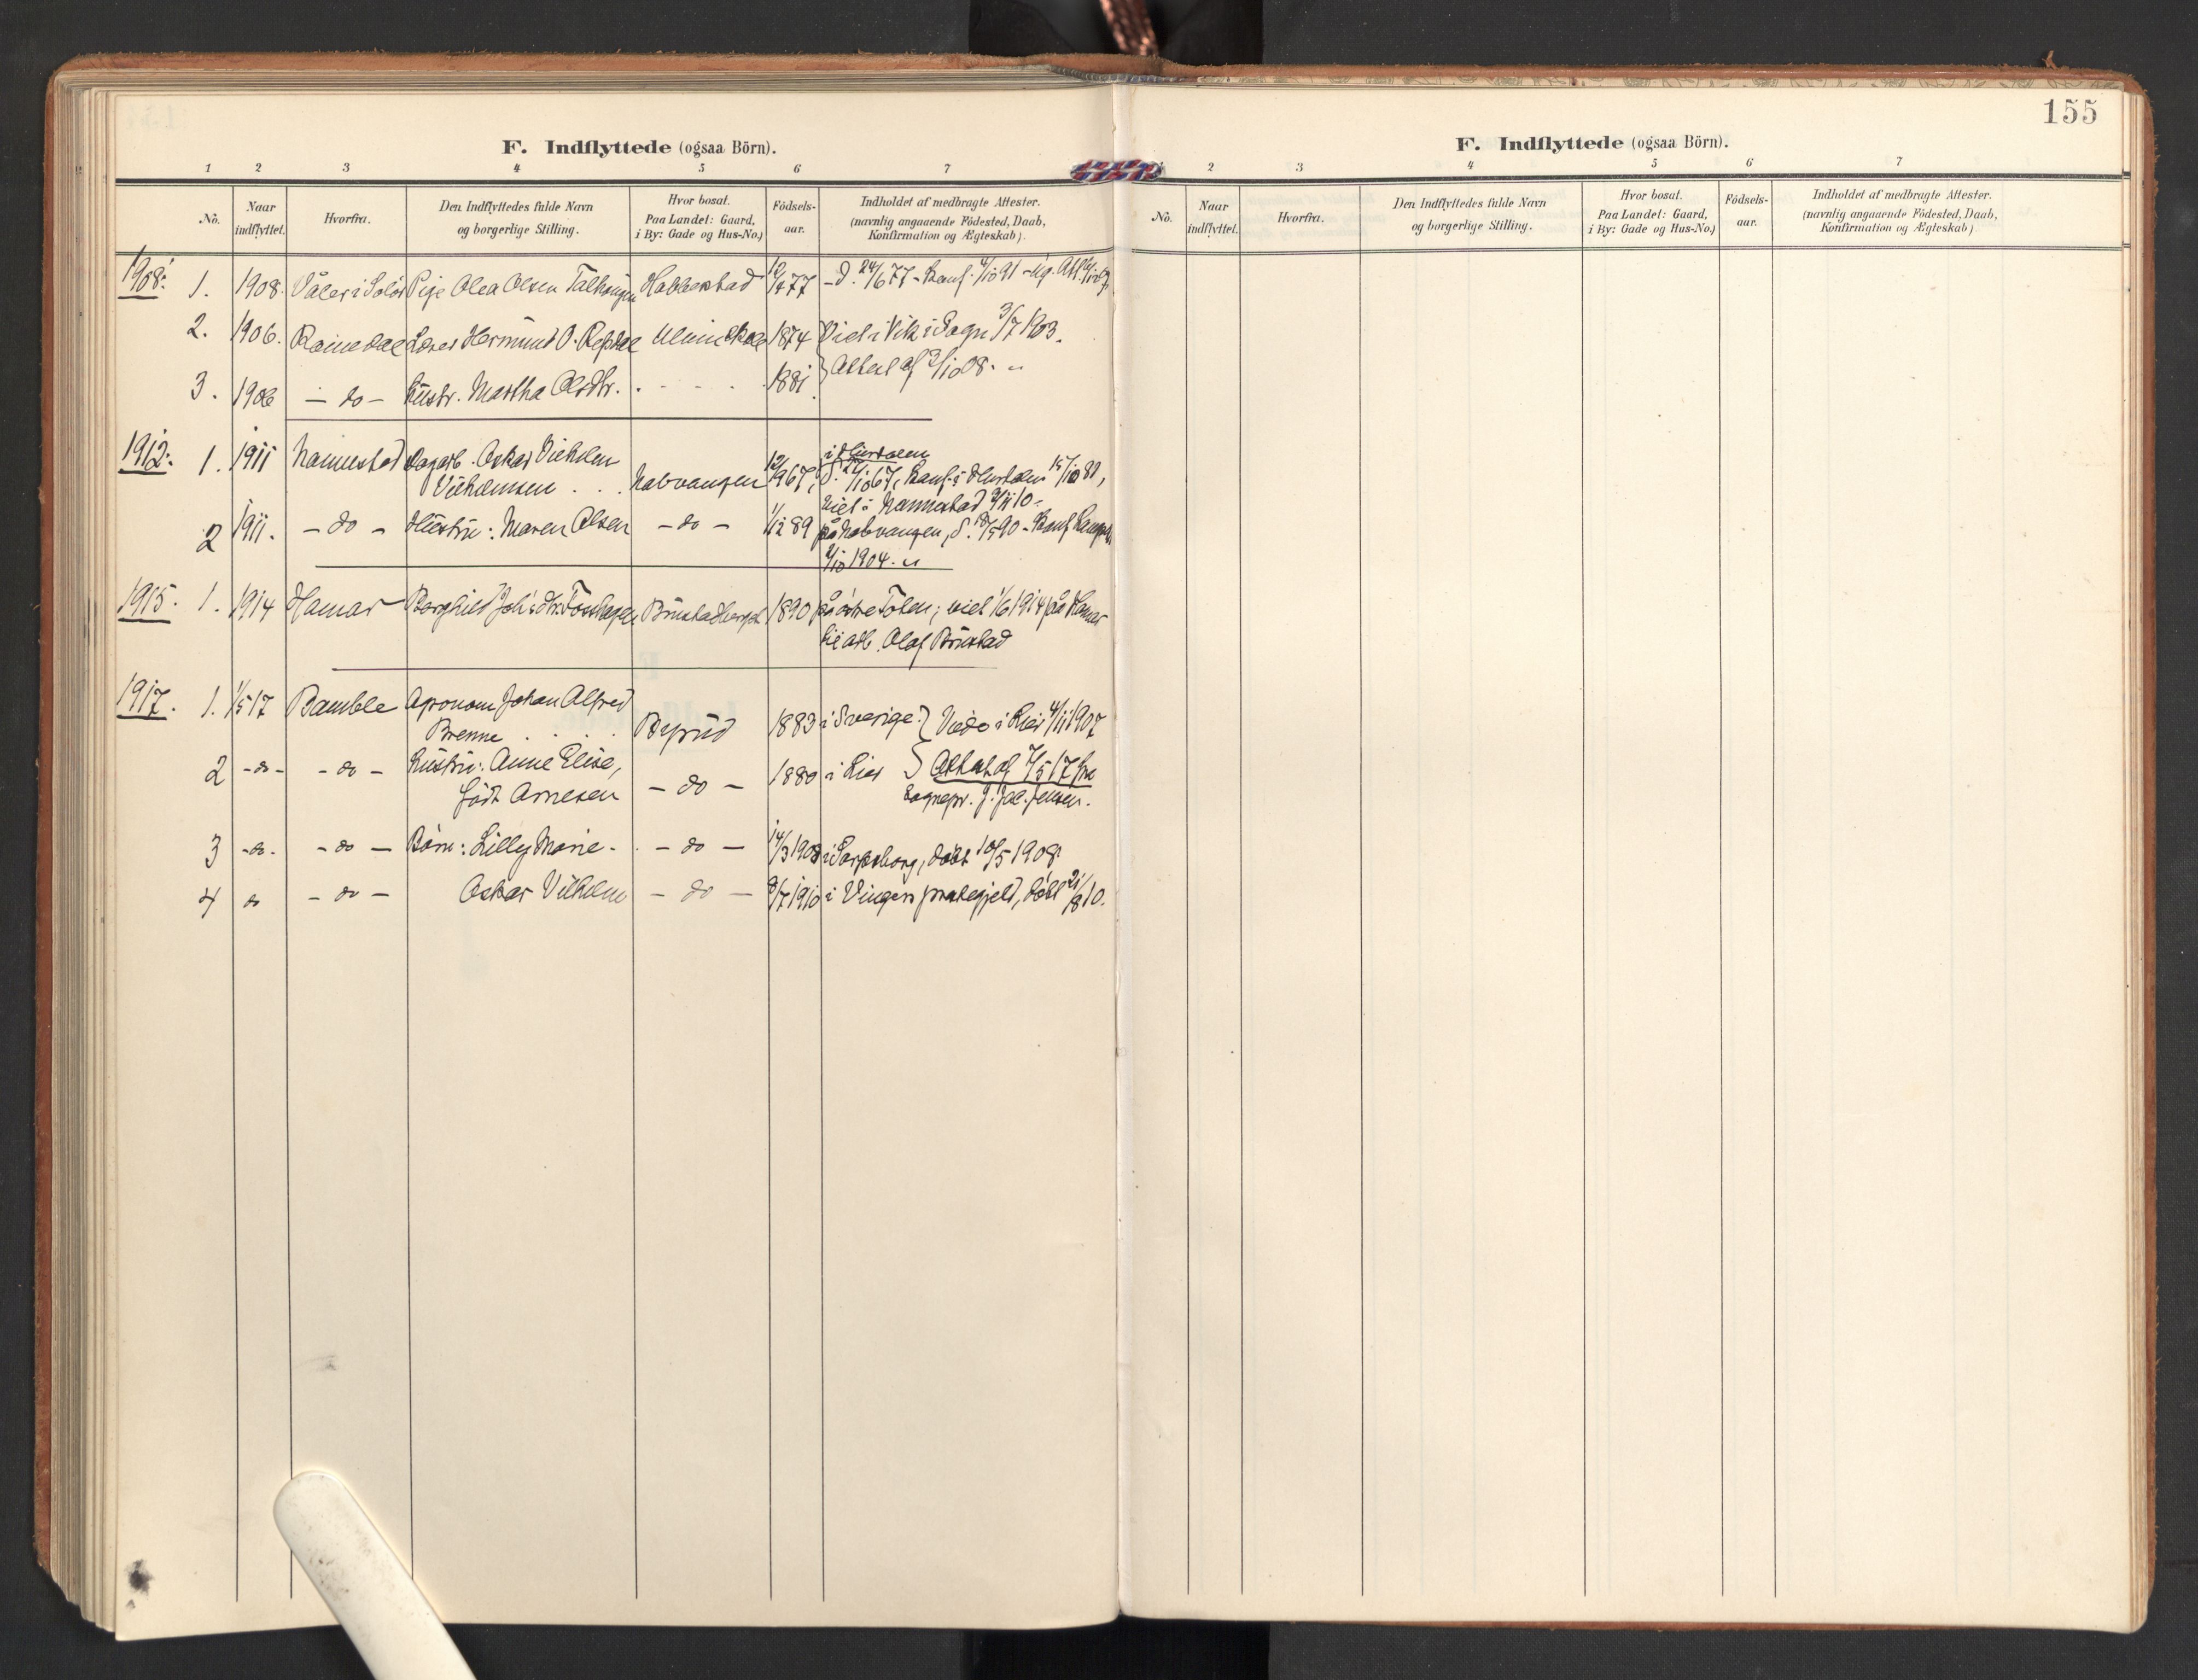 F. Indflyttede (ogsaa Börn).
1 2 3 4 5 6 7
No. Naar indflyttet. Hvorfra. Den Indflyttedes fulde Navn og borgerlige Stilling. Hvor bosat. Paa Landet: Gaard, i By: Gade og Hus-No.) Födsels-aar. Indholdet af medbragte Attester. (navnlig angaaende Födested, Daab, Konfirmation og Ægteskab).
1908: 1. 1908. Våler i Solör Pige Olea Olsen 12/4 77 - d. 24/6 77 - Konf. 4/10 91 - ug. Att.
2. 1906. Lærer Hermund O. 1874 Viet i Vik i Sogn 3/7 1903.
3. 1906 - do - Hustr. Martha Olsdtr. . - - - . 1881 Attest af 3/10 08. "
1912: 1. 1911 Nannestad Dagarb. Oskar Vilhelm i Hurdalen
Vilhelmsen . . . 12/9 67, Konf. i Hurdalen 15/10 82,
viet i Nannestad 10 -
2 1911. - do - Hustru: Maren Olsen - do - 1/12 89 d. 18/5 90 - Konf.
2/10 1904. "
1915. 1. 1914 Hamar Borghild Joh's dtr. 1890 på östre Toten; viet 1/6 1914 på Hamar
til arb. Olaf
1917. 1. 1/5 17 Bamble Agronom Johan Alfred
Brenne . . . . 1883 i Sverige. } Viede i Lier 4/11 1907
2 -do- - do - Hustru: Anne Elise,
född Arnesen - do - 1880 i Lier } Attest af 7/5 17 fra
Sognepr. J. Jensen.
3 -do- - do - Börn: Lilly Marie - . - do - 14/3 1908 i Sarpsborg, döbt 10/5 1908
4 do - do - Oskar Vilhelm - do - 8/7 1910 i Vinger prestegjeld, döbt 21/8 10.
155
F. Indflyttede (ogsaa Börn).
2 3 4 5 6 7
No. Naar indflyttet. Hvorfra. Den Indflyttedes fulde Navn og borgerlige Stilling. Hvor bosat. Paa Landet: Gaard, i By: Gade og Hus-No.) Födsels-aar. Indholdet af medbragte Attester. (navnlig angaaende Födested, Daab, Konfirmation og Ægteskab)